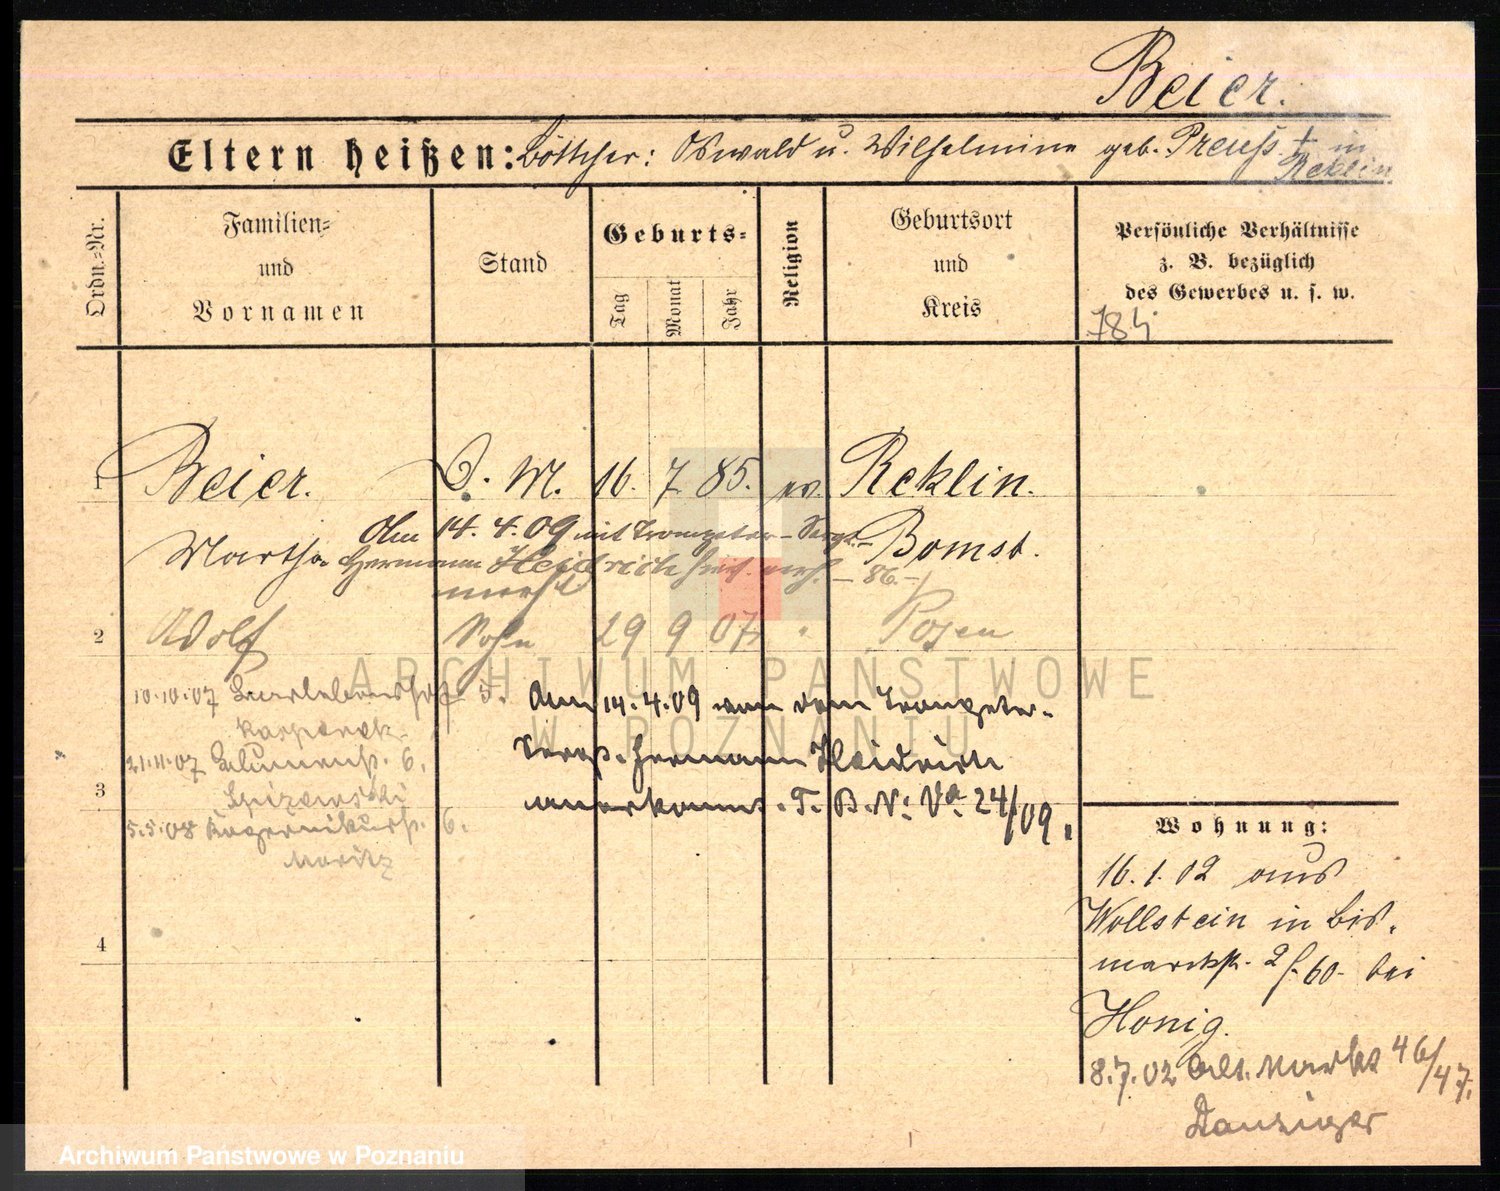 Beier.
Eltern heißen: Böttcher: Oswald u. Wilhelmine geb. Preuß † in
Reklin
Ordn.-Nr.
Familien-
und
Vornamen
Stand
Geburts-
Tag
Monat
Jahr
Religion
Geburtsort
und
Kreis
Persönliche Verhältnisse
z. B. bezüglich
des Gewerbes u. s. w.
784
1
Beier. D. M. 16. 7. 85. ev. Reklin.
Martha Bomst.
Am 14.4.09 mit Trompeter-Sergt.-
Hermann Heidrich hies. verh. - 86.-
2
Adolf Sohn 29 9 07 " Posen
10.10.07 5.
21.11.07 Blumenstr. 6.
3
5.5.08 6.
Moritz
Am 14.4.09 von dem Trompeter-
Serg. Hermann Heidrich
anerkannt. T. B. N: Va. 24/09.
4
Wohnung:
16.1.02 aus
Wollstein in Bis-
marckstr. 2/ 60- bei
Honig.
8.7.02 Alt. Markt 46/47.
Danziger
ARCHIWUM PAŃSTWOWE
W POZNANIU
Archiwum Państwowe w Poznaniu